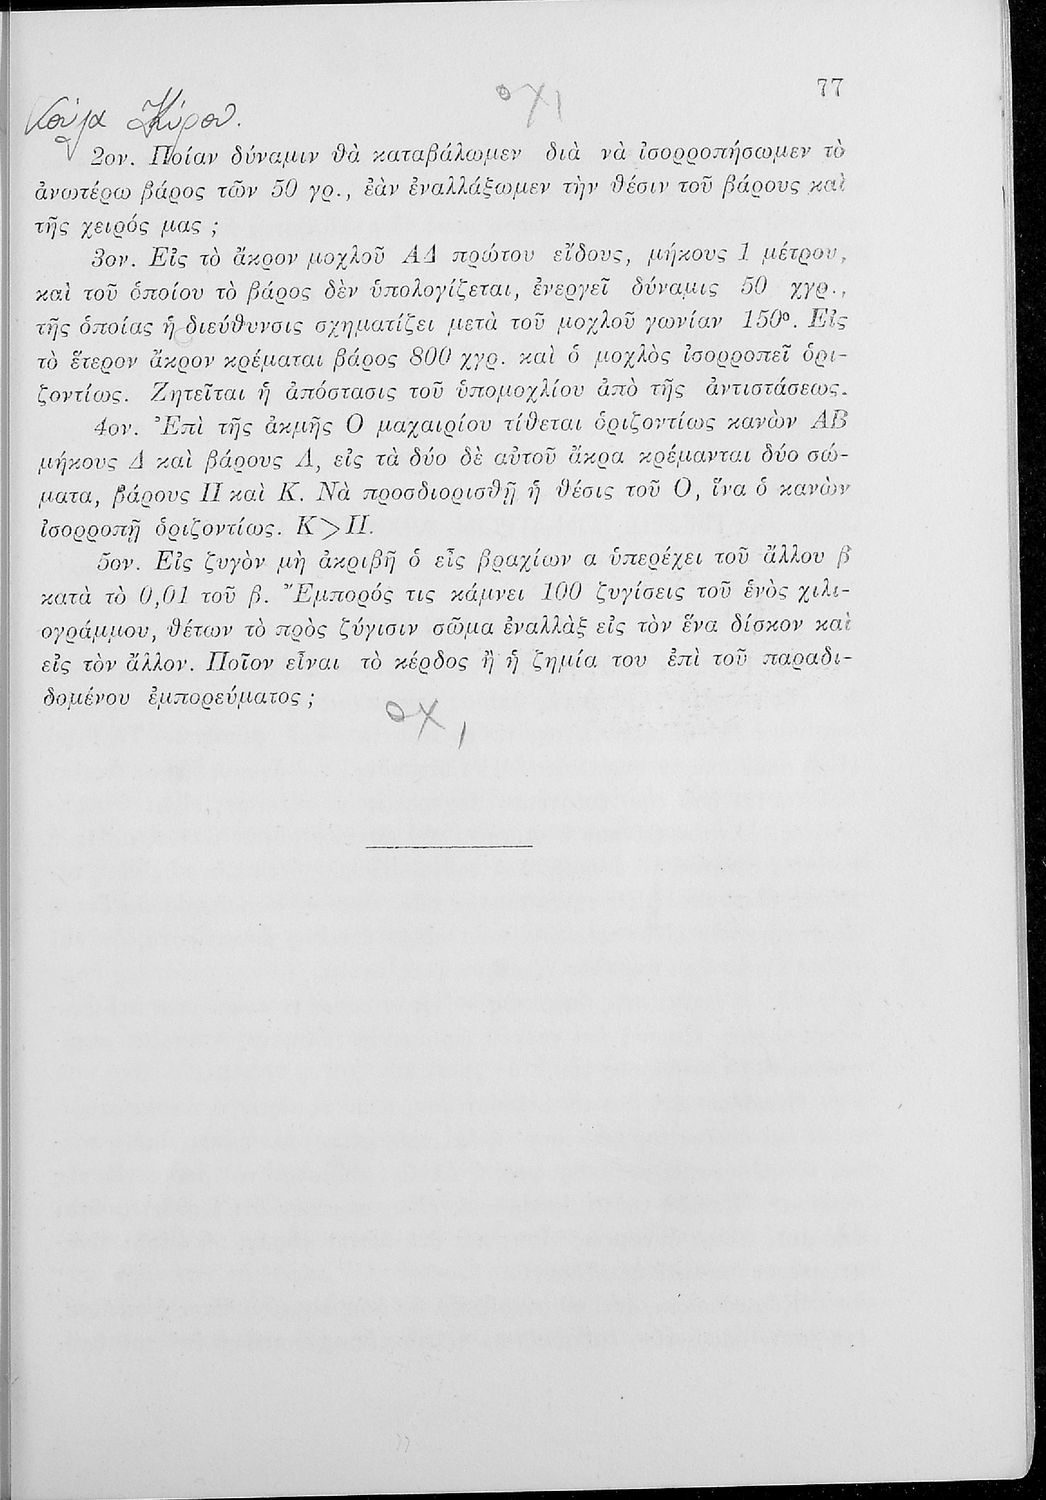 77
οχι
Κύρου.
2ον. Ποίαν δύναμιν θὰ καταβάλωμεν διὰ νὰ ἰσορροπήσωμεν τὸ
ἀνωτέρω βάρος τῶν 50 γρ., ἐὰν ἐναλλάξωμεν τὴν θέσιν τοῦ βάρους καὶ
τῆς χειρός μας ;
3ον. Εἰς τὸ ἄκρον μοχλοῦ ΑΔ πρώτου εἴδους, μήκους 1 μέτρου,
καὶ τοῦ ὁποίου τὸ βάρος δὲν ὑπολογίζεται, ἐνεργεῖ δύναμις 50 χγρ.,
τῆς ὁποίας ἡ διεύθυνσις σχηματίζει μετὰ τοῦ μοχλοῦ γωνίαν 150°. Εἰς
τὸ ἕτερον ἄκρον κρέμαται βάρος 800 χγρ. καὶ ὁ μοχλὸς ἰσορροπεῖ ὁρι-
ζοντίως. Ζητεῖται ἡ ἀπόστασις τοῦ ὑπομοχλίου ἀπὸ τῆς ἀντιστάσεως.
4ον. Ἐπὶ τῆς ἀκμῆς Ο μαχαιρίου τίθεται ὁριζοντίως κανὼν ΑΒ
μήκους Δ καὶ βάρους Λ, εἰς τὰ δύο δὲ αὐτοῦ ἄκρα κρέμανται δύο σώ-
ματα, βάρους Π καὶ Κ. Νὰ προσδιορισθῇ ἡ θέσις τοῦ Ο, ἵνα ὁ κανὼν
ἰσορροπῇ ὁριζοντίως. Κ>Π.
5ον. Εἰς ζυγὸν μὴ ἀκριβῆ ὁ εἷς βραχίων α ὑπερέχει τοῦ ἄλλου β
κατὰ τὸ 0,01 τοῦ β. Ἔμπορός τις κάμνει 100 ζυγίσεις τοῦ ἑνὸς χιλι-
ογράμμου, θέτων τὸ πρὸς ζύγισιν σῶμα ἐναλλὰξ εἰς τὸν ἕνα δίσκον καὶ
εἰς τὸν ἄλλον. Ποῖον εἶναι τὸ κέρδος ἢ ἡ ζημία του ἐπὶ τοῦ παραδι-
δομένου ἐμπορεύματος ;
οχι